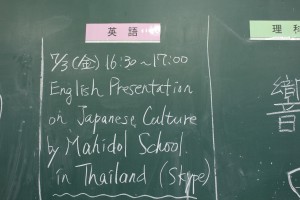 英語
7/3(金) 16:30~17:00
English Presentation
on Japanese Culture
by Mahidol School
in Thailand (Skype)
理科
響